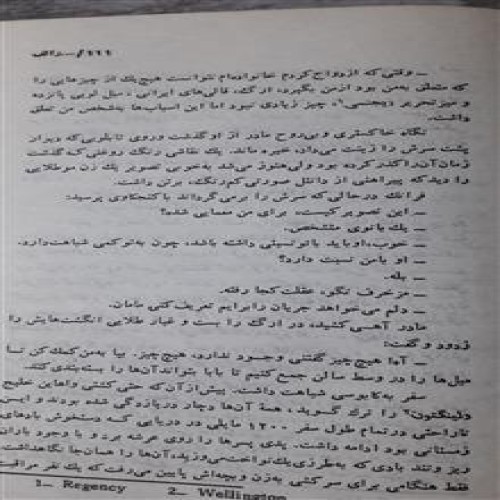 ۱۱۱/سراف
ـ وقتی که ازدواج کردم خانواده‌ام نتوانست هیچ‌یك از چیزهایی را
که متعلق به‌من بود ازمن بگیرد، ارگ، قالی‌های ایرانی، مبل لویی پانزده
و میز تحریر ریجنسی۱، چیز زیادی نبود اما این اسباب‌ها به‌شخص من تعلق
داشت.
نگاه خاکستری و بی‌روح مادر از او گذشت و روی تابلویی که دیوار
پشت سرش را زینت می‌داد، خیره ماند. یك نقاشی رنگ روغنی که گذشت
زمان آن‌را کدر کرده بود ولی هنوز می‌شد به‌خوبی تصویر یك زن موطلایی
را دید که پیراهنی از دانتل صورتی کم‌رنگ، برتن داشت.
فرانك درحالی‌که سرش را برمی‌گرداند با کنجکاوی پرسید:
ـ این تصویر کیست، برای من معمایی شده؟
ـ یك بانوی متشخص.
ـ خوب، او باید باتو نسبتی داشته باشد، چون به‌تو کمی شباهت دارد.
ـ او بامن نسبت دارد؟
ـ بله.
ـ مزخرف نگو، عقلت کجا رفته.
ـ دلم می‌خواهد جریان را برایم تعریف کنی مامان.
مادر آهی کشید، در ارگ را بست و غبار طلایی انگشت‌هایش را
زدود و گفت:
ـ آوا هیچ چیز گفتنی وجود ندارد، هیچ چیز. بیا به‌من کمك کن تا
مبل‌ها را در وسط سالن جمع کنیم تا بابا بتواند آن‌ها را بسته‌بندی کند.
سفر به‌کابوسی شباهت داشت. پیش‌ازآن‌که حتی کشتی واهاین خلیج
ولینگتون۲ را ترك گوید، همهٔ آن‌ها دچار دریازدگی شده بودند و این
ناراحتی در تمام طول سفر ۱۲۰۰ مایلی در دریایی که دستخوش بادهای
زمستانی بود ادامه داشت. پدی پسرها را روی عرشه برد و با وجود باران
ریز و تند بادی که به‌طرزی یك‌نواخت می‌وزید، آن‌ها را همان‌جا نگاهداشت.
فقط هنگامی برای سرکشی به‌زن و بچه‌اش پایین می‌رفت که یك نفر مراقبت
1— Regency 2— Wellington